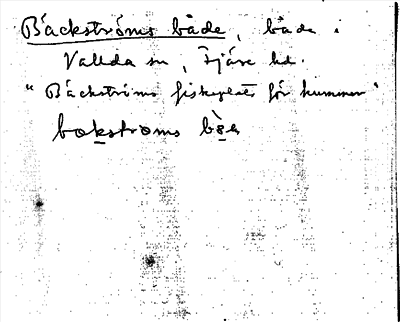 Bäckströms både, både i
Vallda sn, Fjäre hd.
"Bäckströms fiskeplats för hummer"
bækstroms